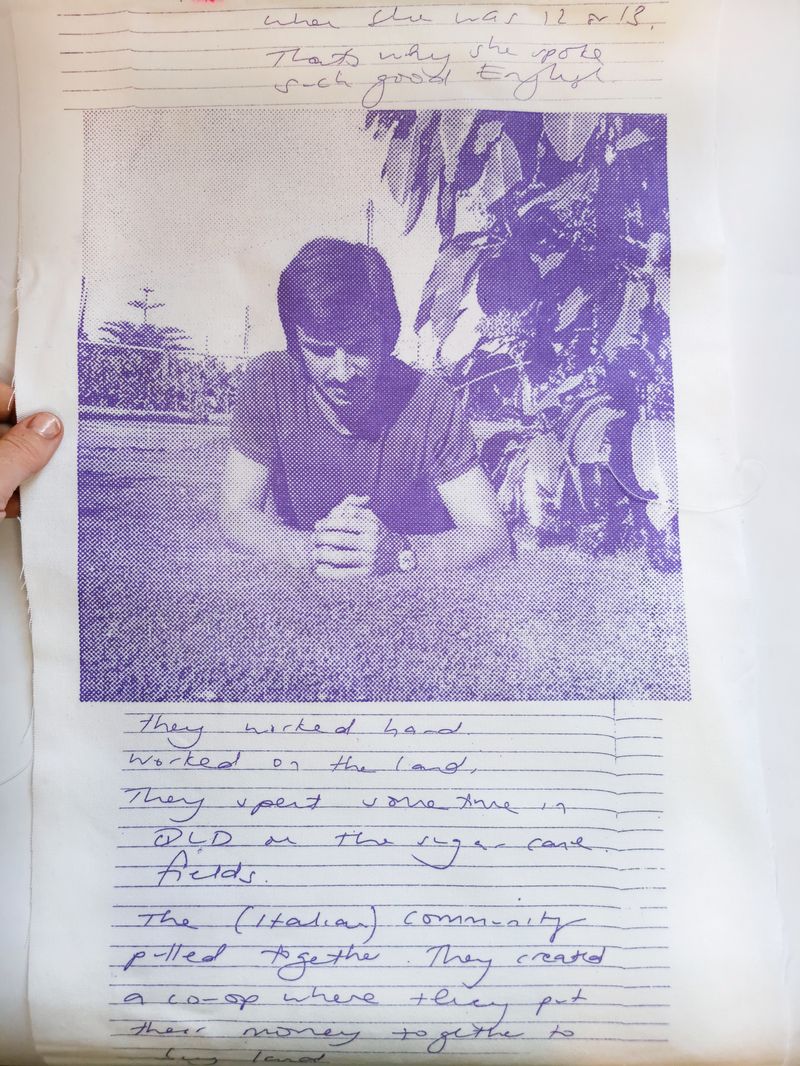 when she was 12 or 13.
Thats why she spoke
such good English
they worked hard
worked on the land,
They spent some time in
QLD on the sugar cane
fields.
The (Italian) community
pulled together. They created
a co-op where they put
their money together to
buy land